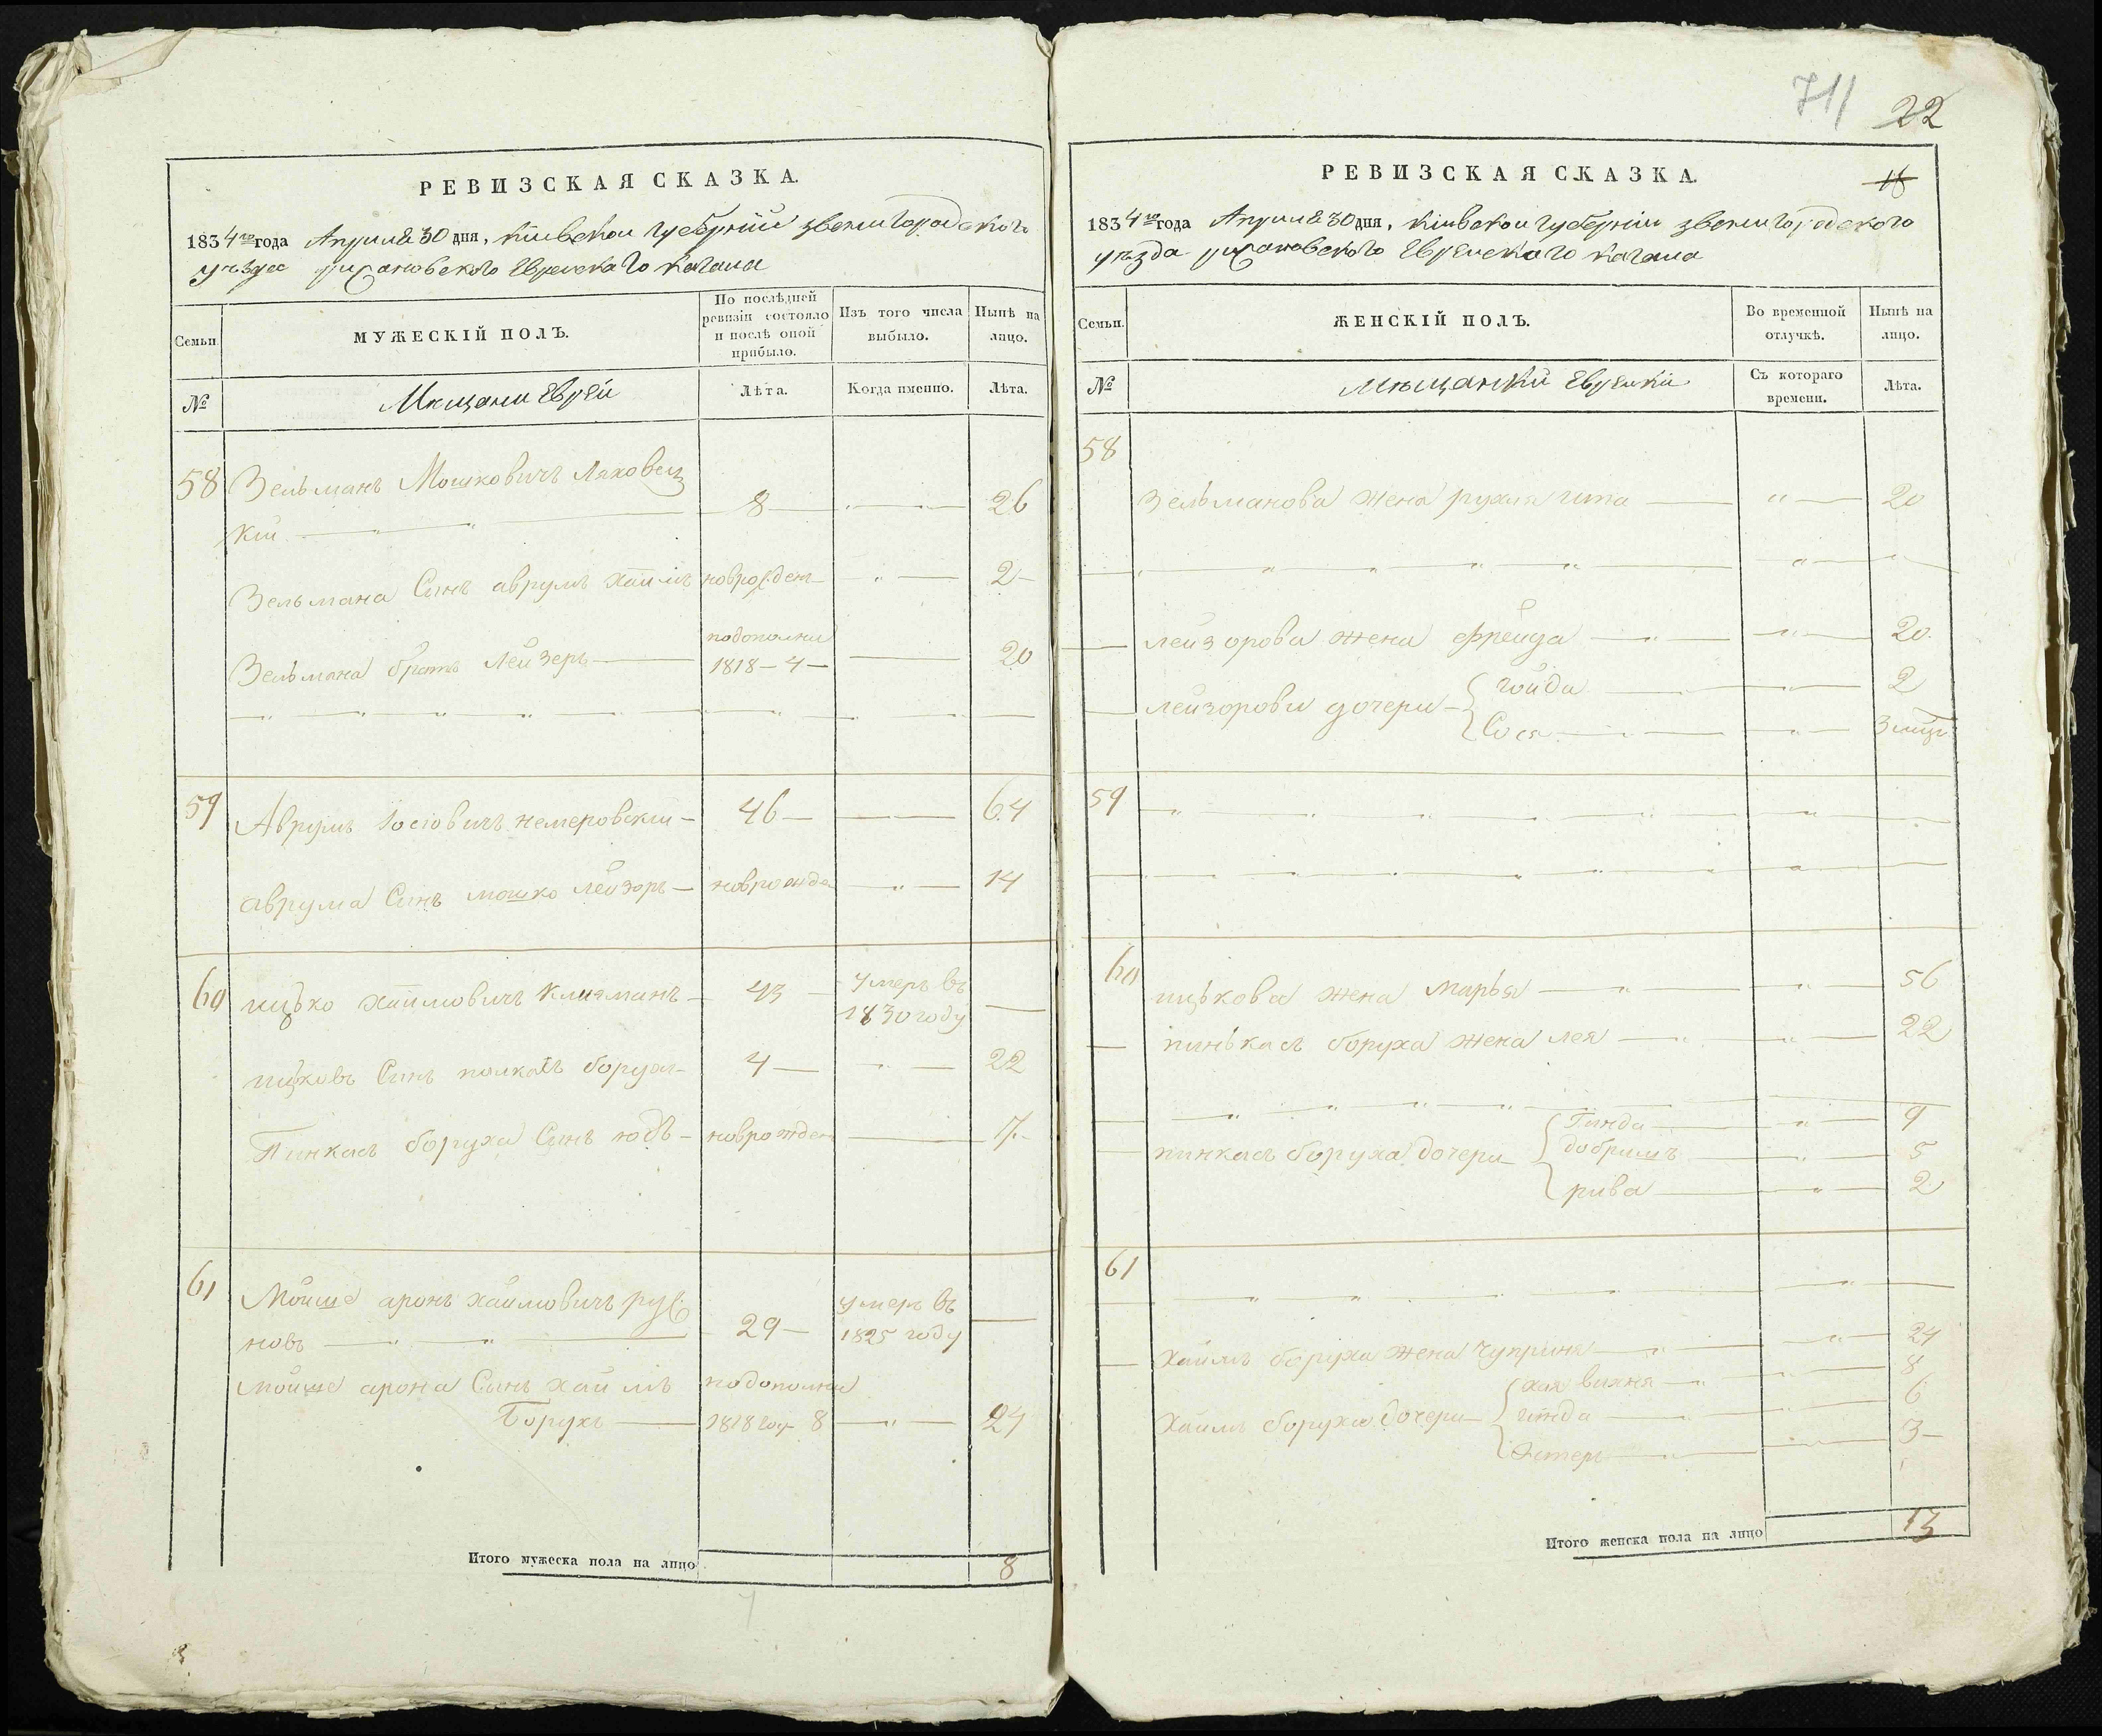 РЕВИЗСКАЯ СКАЗКА.
1834го года Апреля 30 дня, Киевской губернии звенигородского
уезда рижановского Еврейскаго кагала
Семьи.
МУЖЕСКІЙ ПОЛЪ.
По послѣдней ревизіи состояло и послѣ оной прибыло.
Изъ того числа выбыло.
Нынѣ на лицо.
№
Мещане Евреи
Лѣта.
Когда именно.
Лѣта.
58 Зельманъ Мошковичъ Ляховец
кій 8 26
Зельмана Сынъ аврумъ хаимъ новрожден 2
Зельмана братъ Лейзеръ подополни 1818 - 4 20
59 Аврумъ Іосіовичъ немеровскій 46 64
аврума Сынъ мошко лейзоръ новрожде 14
60 ицько хаимовичъ 43 умеръ въ 1830 году
ицковъ Сынъ борухъ 4 22
Пинкасъ боруха Сынъ новрожден 7
61 Мойше аронъ хаимовичъ
новъ 29 умеръ въ 1825 году
мойше арона Сынъ хаимъ подополни
Борухъ 1818 году 8 24
Итого мужеска пола на лицо 8
711 22
РЕВИЗСКАЯ СКАЗКА.
18
1834го года Апреля 30 дня, Киевской губернии звенигородского
уезда рижановского Еврейскаго кагала
Семьи.
ЖЕНСКІЙ ПОЛЪ.
Во временной отлучкѣ.
Нынѣ на лицо.
№
Мещанки Еврейки
Съ котораго времени.
Лѣта.
58
Зельманова жена рухля гита 20
лейзорова жена фрейда 20
лейзорови дочери гойда 2
Сося 3 мц
59
60
ицькова жена марья 56
пинькасъ боруха жена лея 22
Гинда 9
пинкасъ боруха дочери добришъ 5
рива 2
61
хаимъ боруха жена Чуприня 24
хая 8
хаимъ боруха дочери гинда 6
Эстеръ 3
Итого женска пола на лицо 13